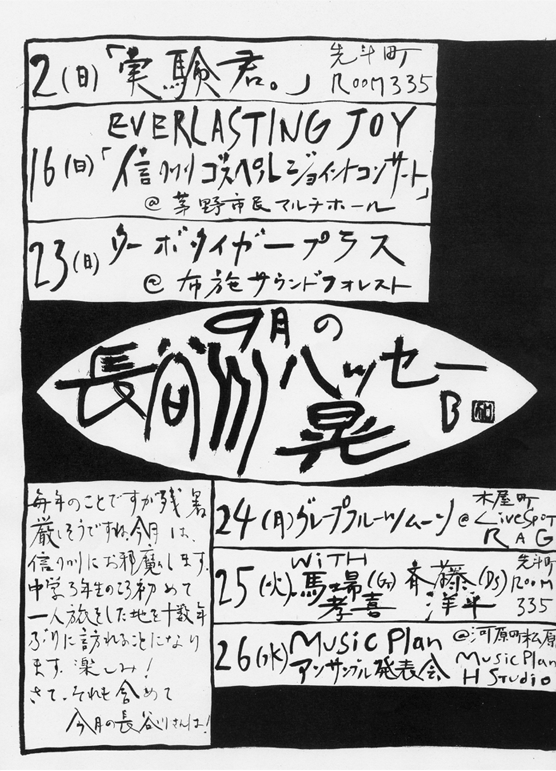 2(日)「実験君。」
先斗町
ROOM335
EVERLASTING JOY
16(日)「信州ゴスペルジョイントコンサート」
@茅野市民マルチホール
23(日)ウーボタイガープラス
@布施サウンドフォレスト
9月の
長谷川ハッセー
晃
B
毎年のことですが残暑
厳しそうですね。今月は、
信州にお邪魔します。
中学3年生のころ初めて
一人旅をした地を十数年
ぶりに訪れることになり
ます。楽しみ!
さて、それも含めて
今月の長谷川さんは!
24(月)グレープフルーツムーン
木屋町
@LiveSpoT
RAG
25(火)WiTH
馬場(Gt)斉藤(Ds)
孝喜 洋平
先斗町
ROOM
335
26(水)Music Plan
アンサンブル発表会
@河原町松原
Music Plan
H Studio